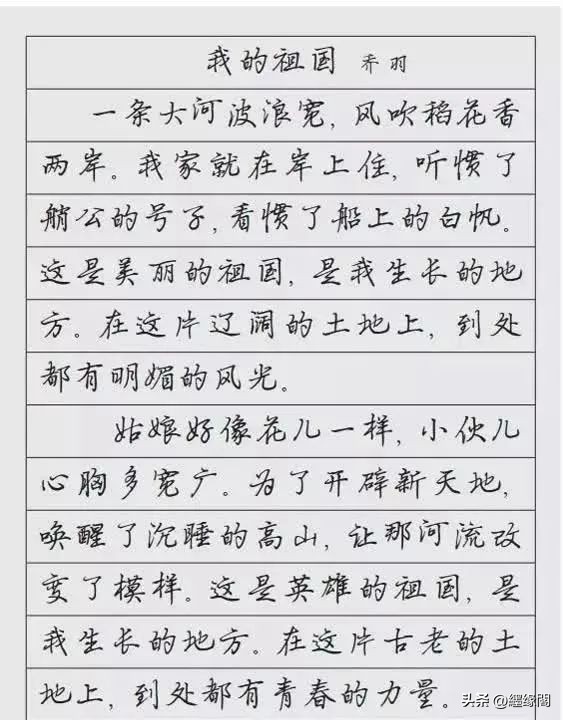 我的祖国 乔羽
一条大河波浪宽，风吹稻花香
两岸。我家就在岸上住，听惯了
艄公的号子，看惯了船上的白帆。
这是美丽的祖国，是我生长的地
方。在这片辽阔的土地上，到处
都有明媚的风光。
姑娘好像花儿一样，小伙儿
心胸多宽广。为了开辟新天地，
唤醒了沉睡的高山，让那河流改
变了模样。这是英雄的祖国，是
我生长的地方。在这片古老的土
地上，到处都有青春的力量。
头条 @纒缘閣